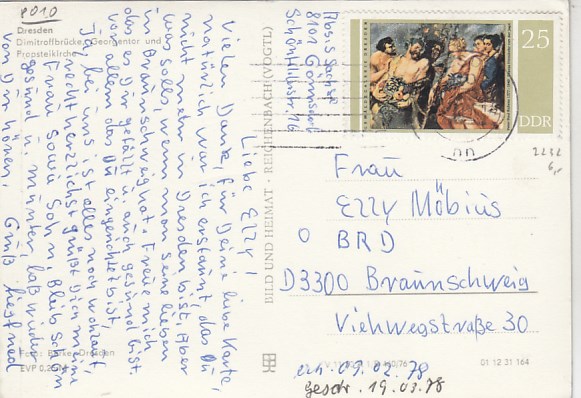 8010
Dresden
Dimitroffbrücke, Georgentor und
Propsteikirche
Liebe Elly!
Vielen Dank, für Deine liebe Karte,
natürlich war ich erstaunt das Du
nicht mehr in Dresden bist. Aber
was solls, wenn man seine lieben
in Braunschweig hat. Freue mich
das Dir gefällt u. auch gesund bist
vor allem das Du eingerichtet bist,
Ja bei uns ist alles noch wohlauf,
recht herzlichst grüßt Dich meine
Frau sowie Sohn, Bleib schön
gesund u. munter, laß wieder
von Dir hören. Gruß Siegfried
Foto: Dresden
EVP 0,20
BILD UND HEIMAT · REICHENBACH (VOGTL)
8101 Gomnsdorf
25
DDR
2232
6,-
Frau
Elly Möbius
BRD
D3300 Braunschweig
Viehwegstraße 30
01 12 31 164
erh. 09.02.78
Geschr. 19.03.78